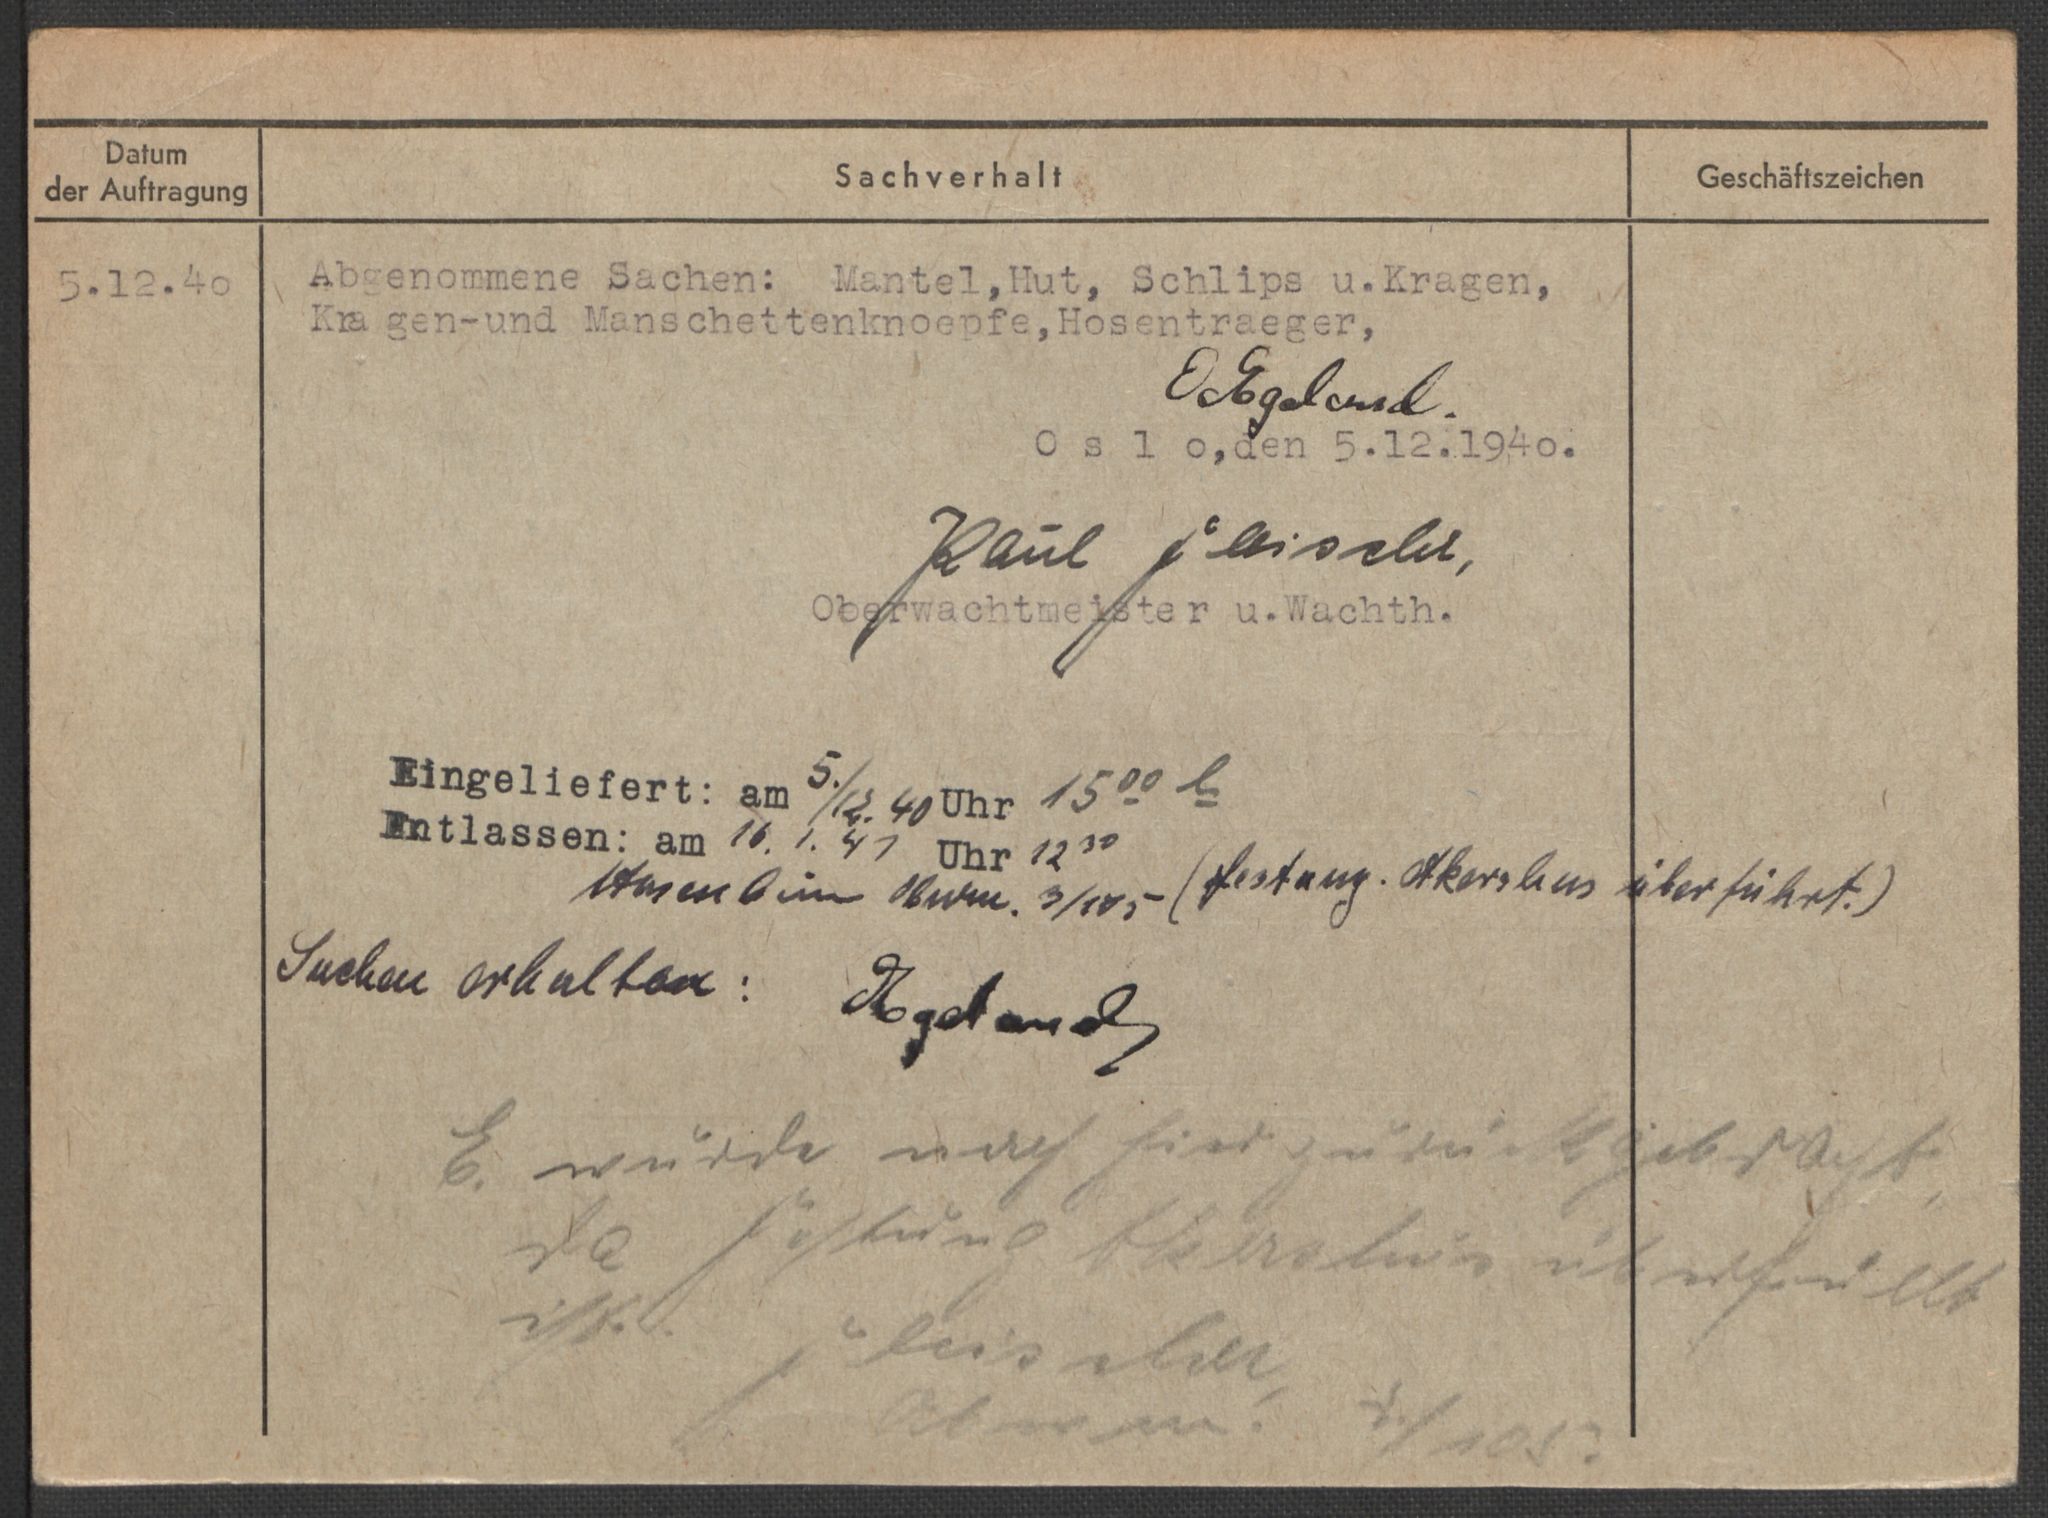 Datum
der Auftragung
Sachverhalt
Geschäftszeichen
5.12.4o
Abgenommene Sachen: Mantel,Hut, Schlips u.Kragen,
Kra gen-und Manschettenknoepfe,Hosentraeger,
O. Egeland.
O s l o,den 5.12.194o.
Paul Fleischer,
Oberwachtmeister u.Wachth.
Eingeliefert: am 5./12. 40 Uhr 15 00 h
Entlassen: am 16. 1. 41 Uhr 12 30
Obwm. 3/105 (Festung. Akershus überführt.)
Sachen erhalten: Egeland
E. wurde nach hier zurückgebracht,
da Festung Akershus überfüllt
ist.
Fleischer,
Obwm. 3./105.